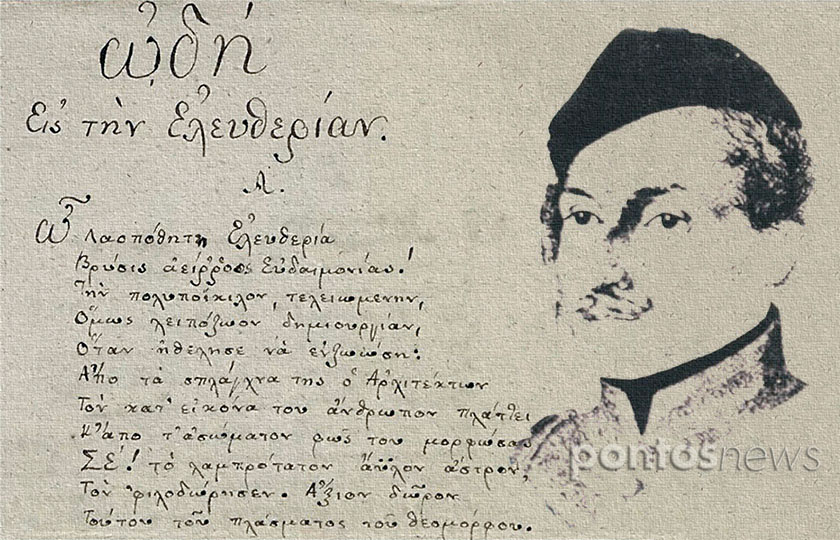 ᾠδή
Εἰς τὴν Ἐλευθερίαν.
Α.
Ὦ Λαοπόθητη Ἐλευθερία
Βρύσις ἀείῤῥοος Εὐδαιμονίας!
Τὴν πολυποίκιλον, τελειωμένην,
Ὅμως λειπόζωον δημιουργίαν,
Ὅταν ἠθέλησε νὰ εὐζωώσῃ:
Ἀπὸ τὰ σπλάγχνα της ὁ Ἀρχιτέκτων
Τὸν κατ' εἰκόνα του ἄνθρωπον πλάττει
Κ' ἀπὸ τ' ἀσώματον φῶς του μορφώσας
ΣΕ! τὸ λαμπρότατον ἄϋλον ἄστρον,
Τὸν φιλοδώρησεν. Ἄξιον δῶρον
Τούτου τοῦ πλάσματος τοῦ θεομόρφου.
pontosnews